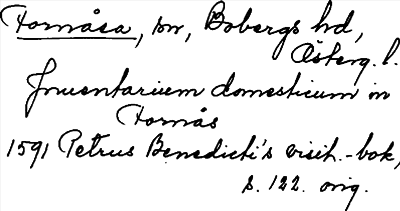 Fornåsa, sn, Bobergs hd,
Österg. l.
Inventarium domesticum in
Fornås
1591 Petrus Benedicti's visit.-bok,
s. 122. orig.